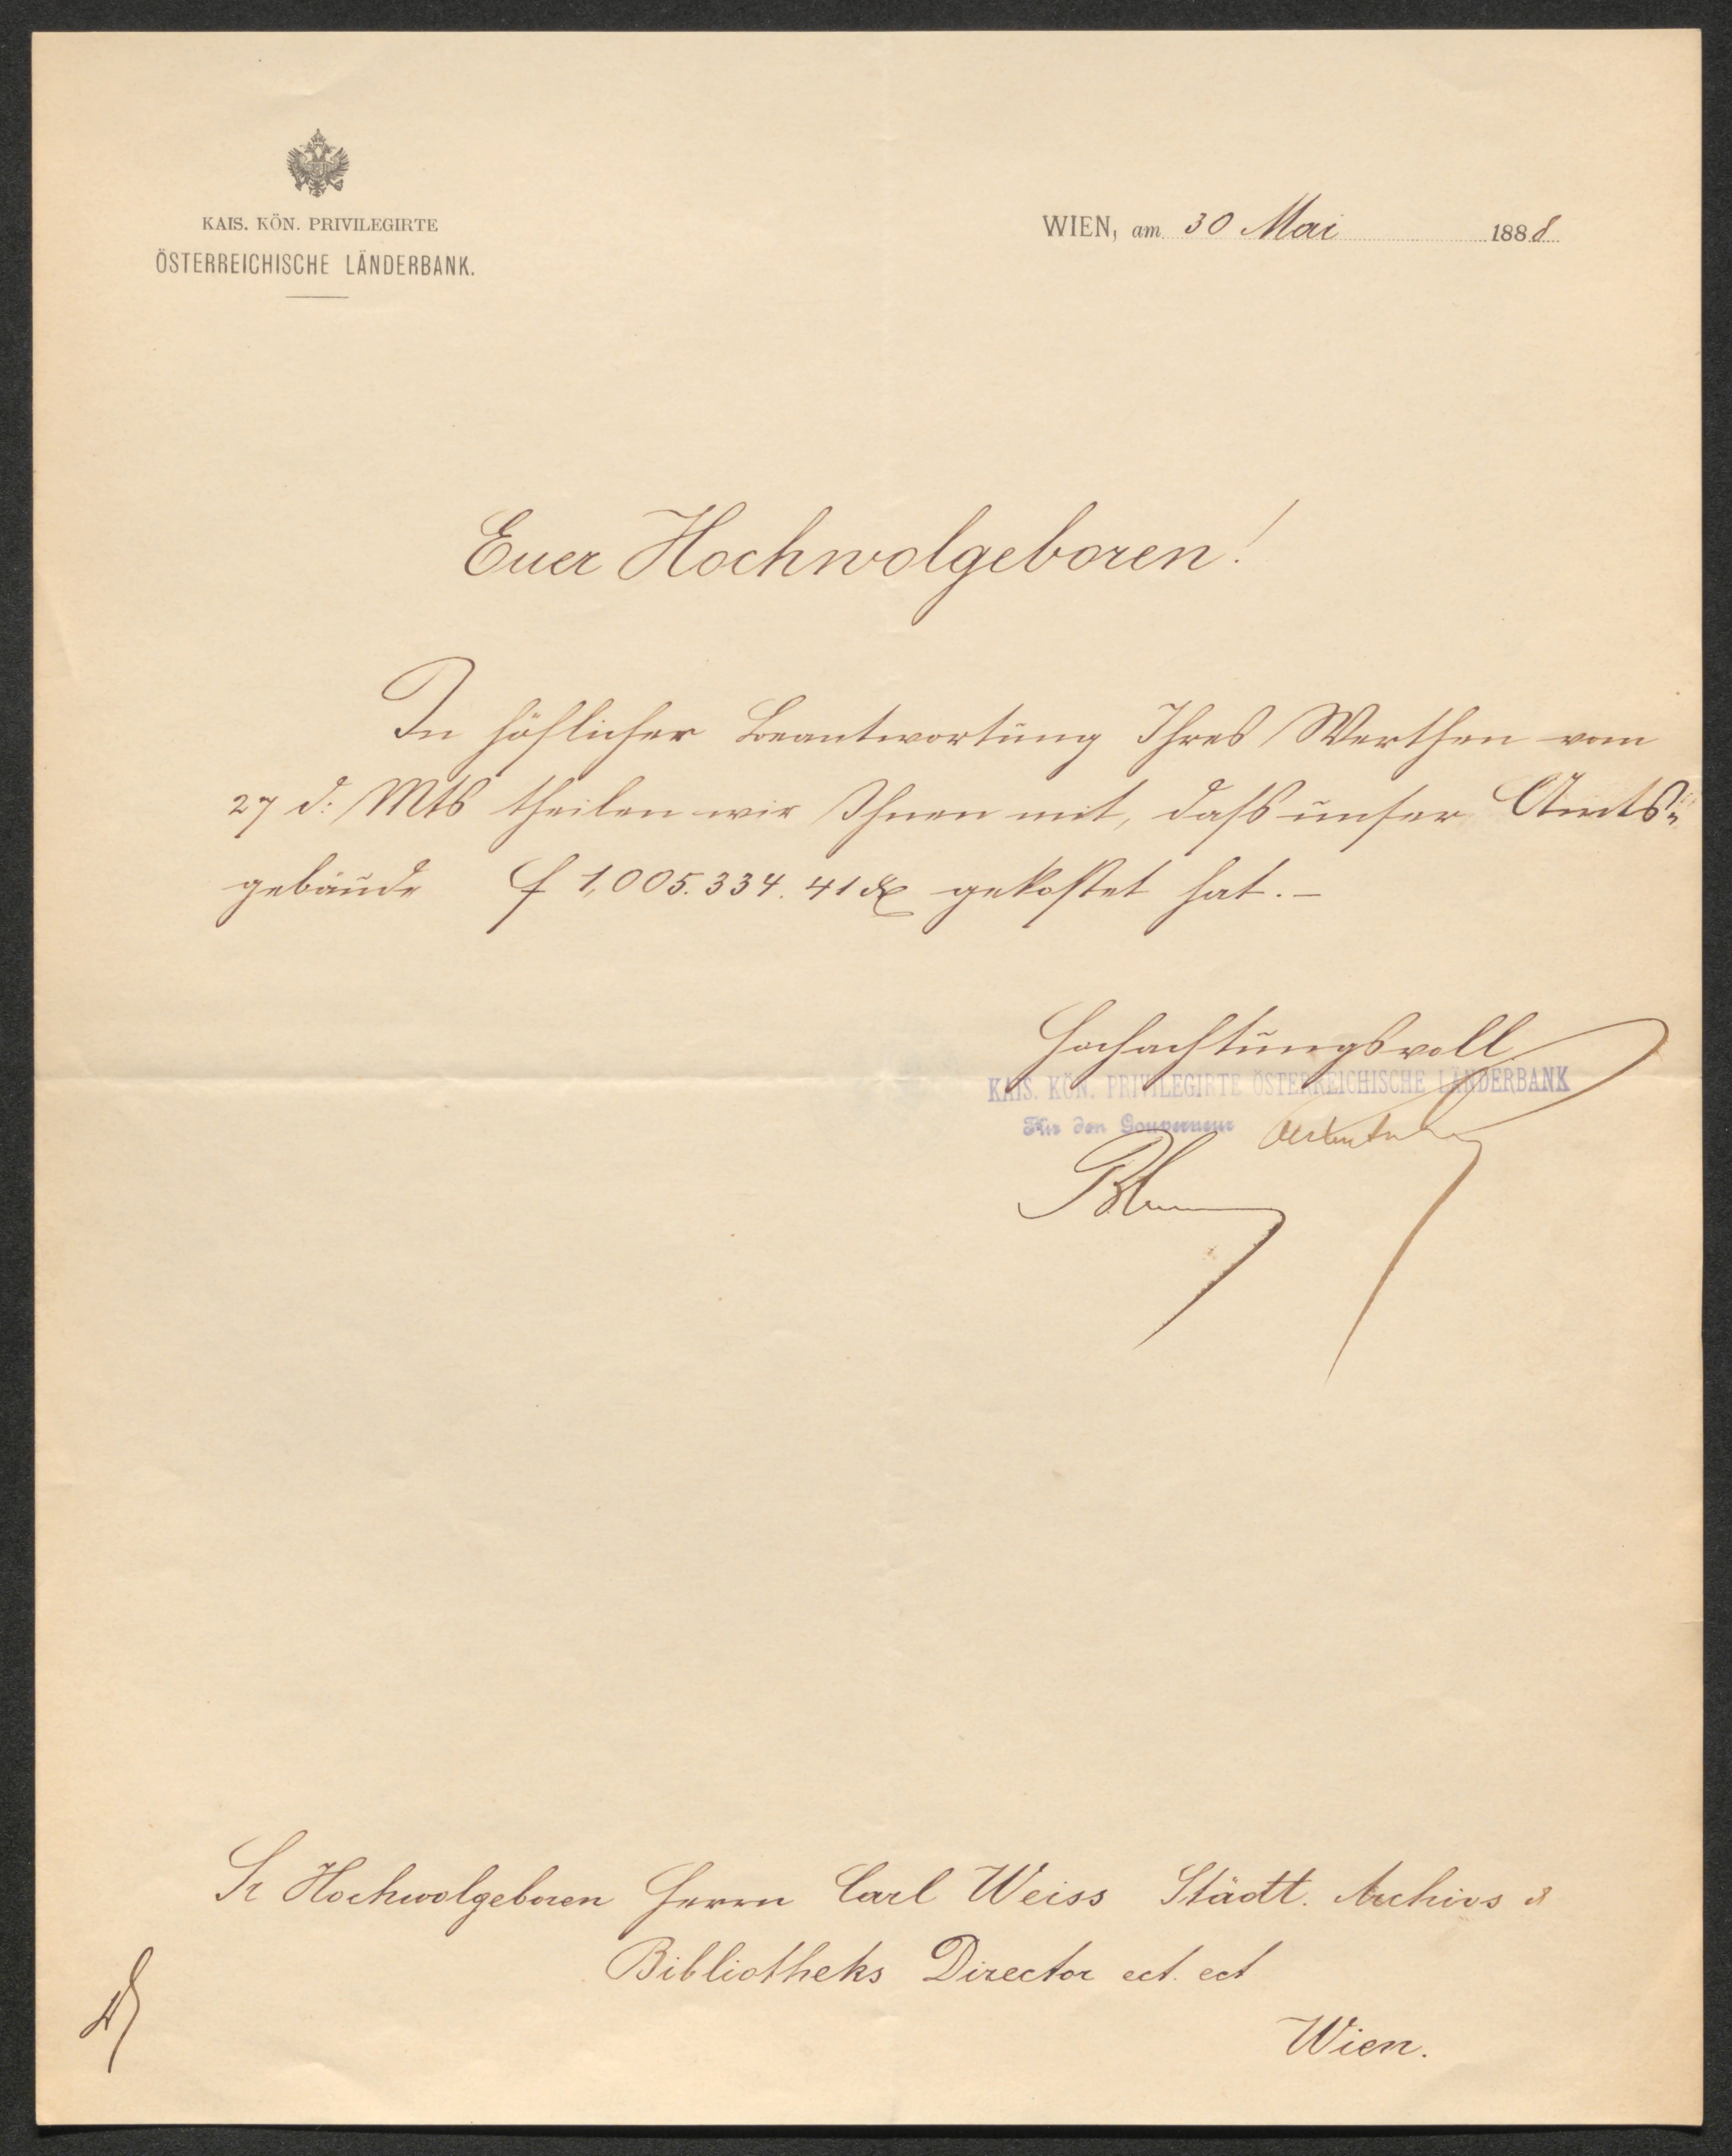 KAIS. KÖN. PRIVILEGIRTE
ÖSTERREICHISCHE LÄNDERBANK.
WIEN, am 30 Mai 1888
Euer Hochwolgeboren!
In höflicher Beantwortung Ihres Werthen vom
27 d: Mts theilen wir Ihnen mit, daß unser Amts-
gebäude f 1,005.334.41 x gekostet hat. –
Hochachtungsvoll
KAIS. KÖN. PRIVILEGIRTE ÖSTERREICHISCHE LÄNDERBANK
Für den Gouverneur
Sr Hochwolgeboren Herrn Carl Weiss Städt. Archivs &
Bibliotheks Director ect. ect
Wien.